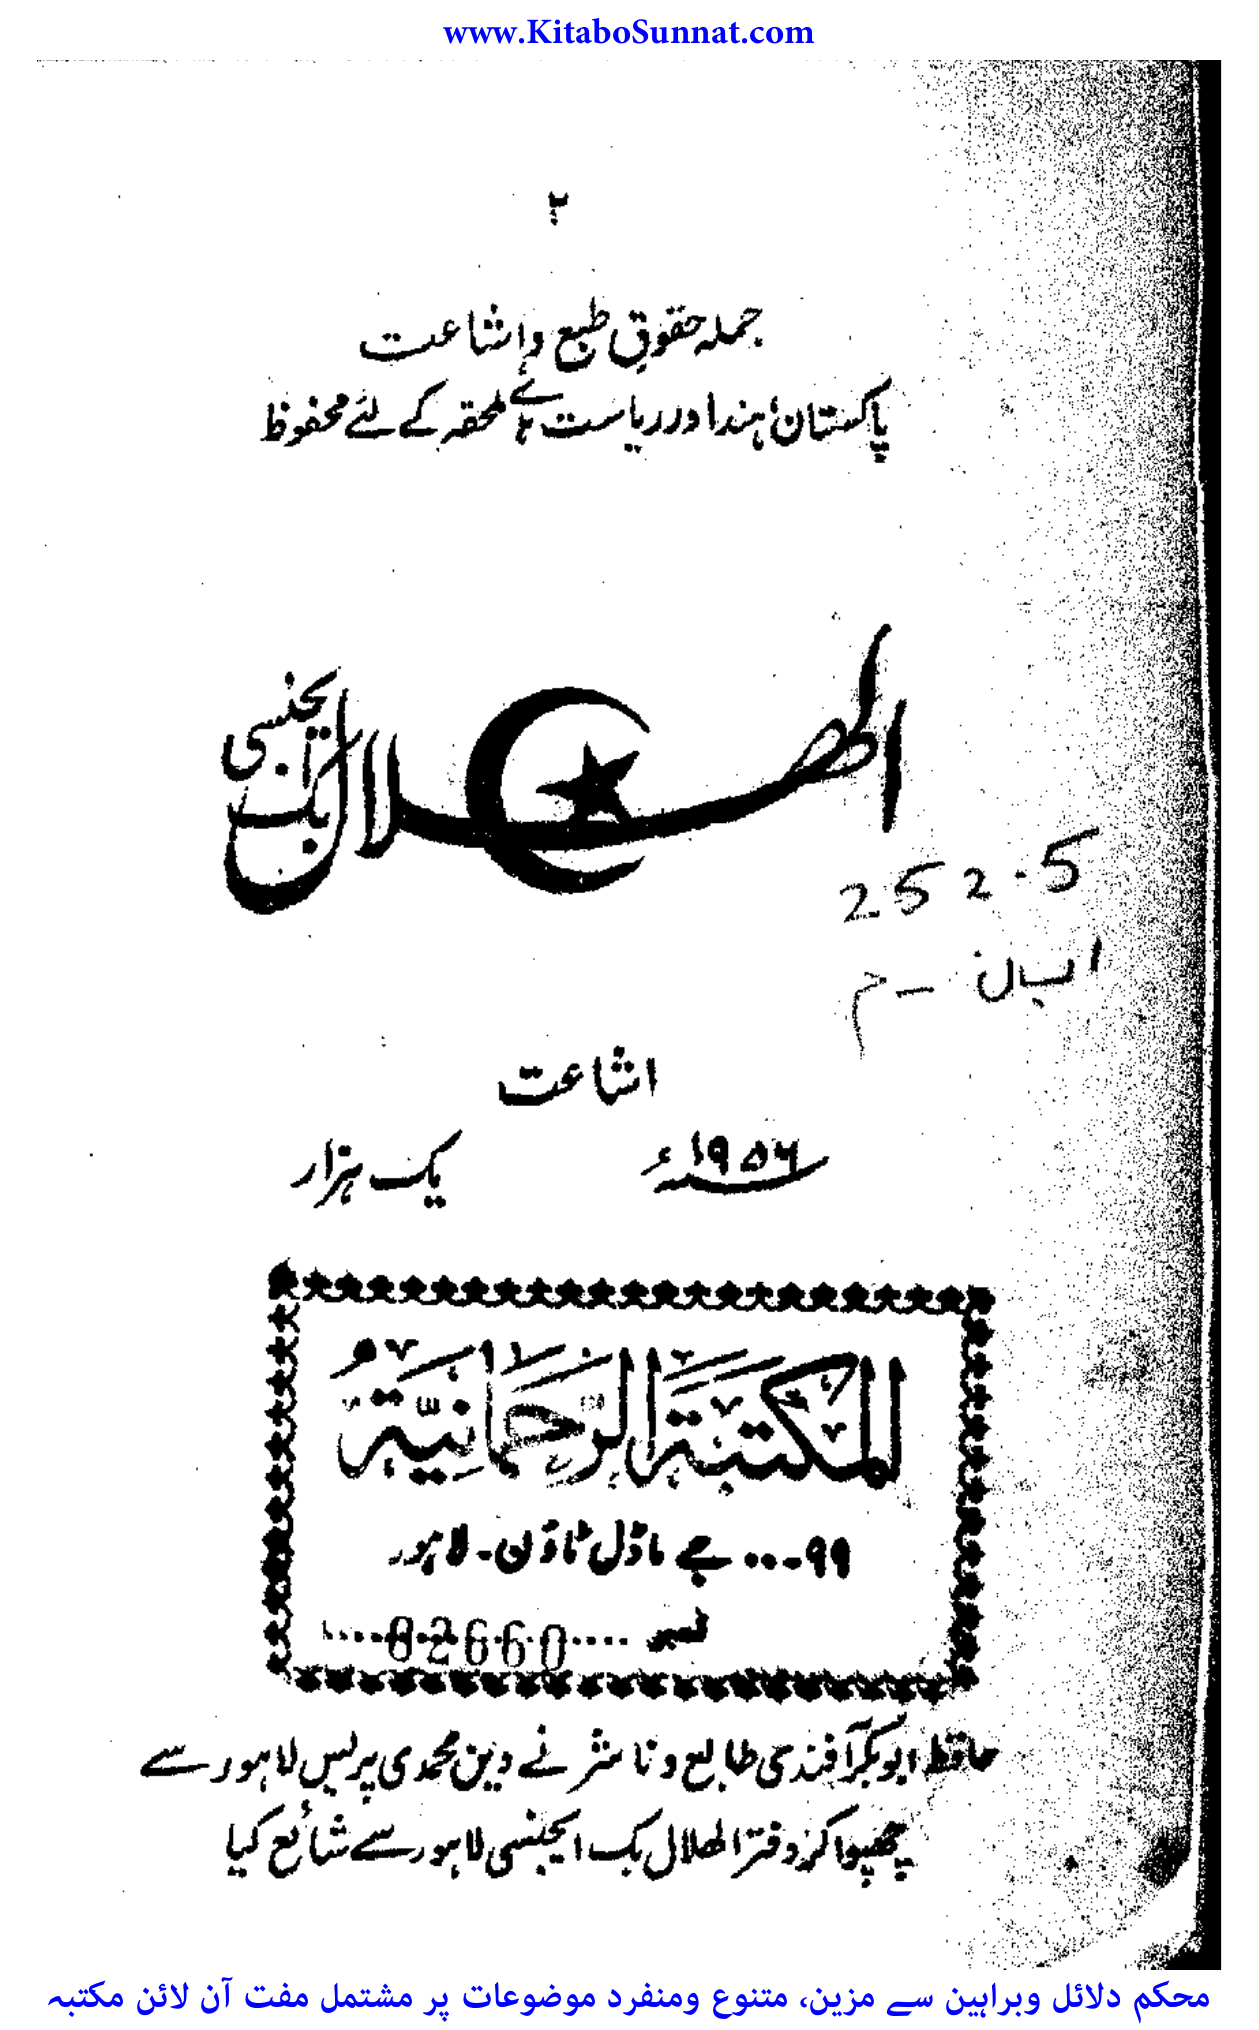 www.KitaboSunnat.com
۲
جملہ حقوقِ طبع و اشاعت
پاکستان، ہند اور ریاست ہائے ملحقہ کے لئے محفوظ
الھلال بک ایجنسی
252.5
م –
اشاعت
۱۹۵۶ء یک ہزار
المكتبة الرحمانية
۹۹-... جے ماڈل ٹاؤن - لاہور
نمبر ....02660....
حافظ ابوبکر آفندی طابع و ناشر نے دین محمدی پریس لاہور سے
چھپوا کر دفتر الھلال بک ایجنسی لاہور سے شائع کیا
محکم دلائل وبراہین سے مزین، متنوع ومنفرد موضوعات پر مشتمل مفت آن لائن مکتبہ